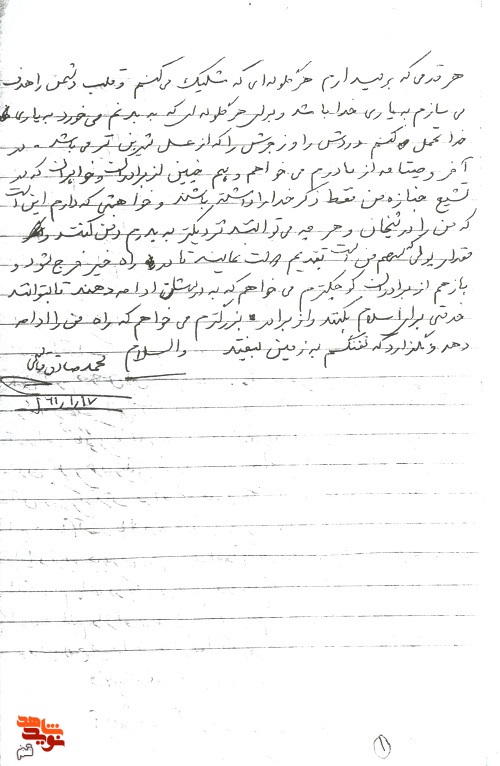 هر قدمی که برمیدارم هر گلوله‌ای که شلیک می‌کنم و قلب دشمن را هدف
می سازم به یاری خدا باشد و برای هر گلوله‌ای که به بدنم می خورد به یاری
خدا تحمل می کنم دردش را و زجرش را که از عسل شیرین تر می باشد. در
آخر وصیتنامه از مادرم می خواهم و هم چنین از برادران و خواهران که در
تشیع جنازه من فقط ذکر خدا را داشته باشند و خواهشی که دارم این است
که من را در شیخان و هر چه می توانند نزدیکتر به پدرم دفن کنند و
مقدار پولی که من است تقدیم ملت نمایید تا در راه خیر خرج شود و
باز هم از برادران کوچکترم می خواهم که به درسشان ادامه دهند تا بتوانند
خدمتی برای اسلام بکنند و از برادر بزرگترم می خواهم که راه من را ادامه
دهد و نگذارد که تفنگم به زمین بیفتد والسلام محمد صادق
۶۱/۱/۱۷
۱
نوید شاهد
قم